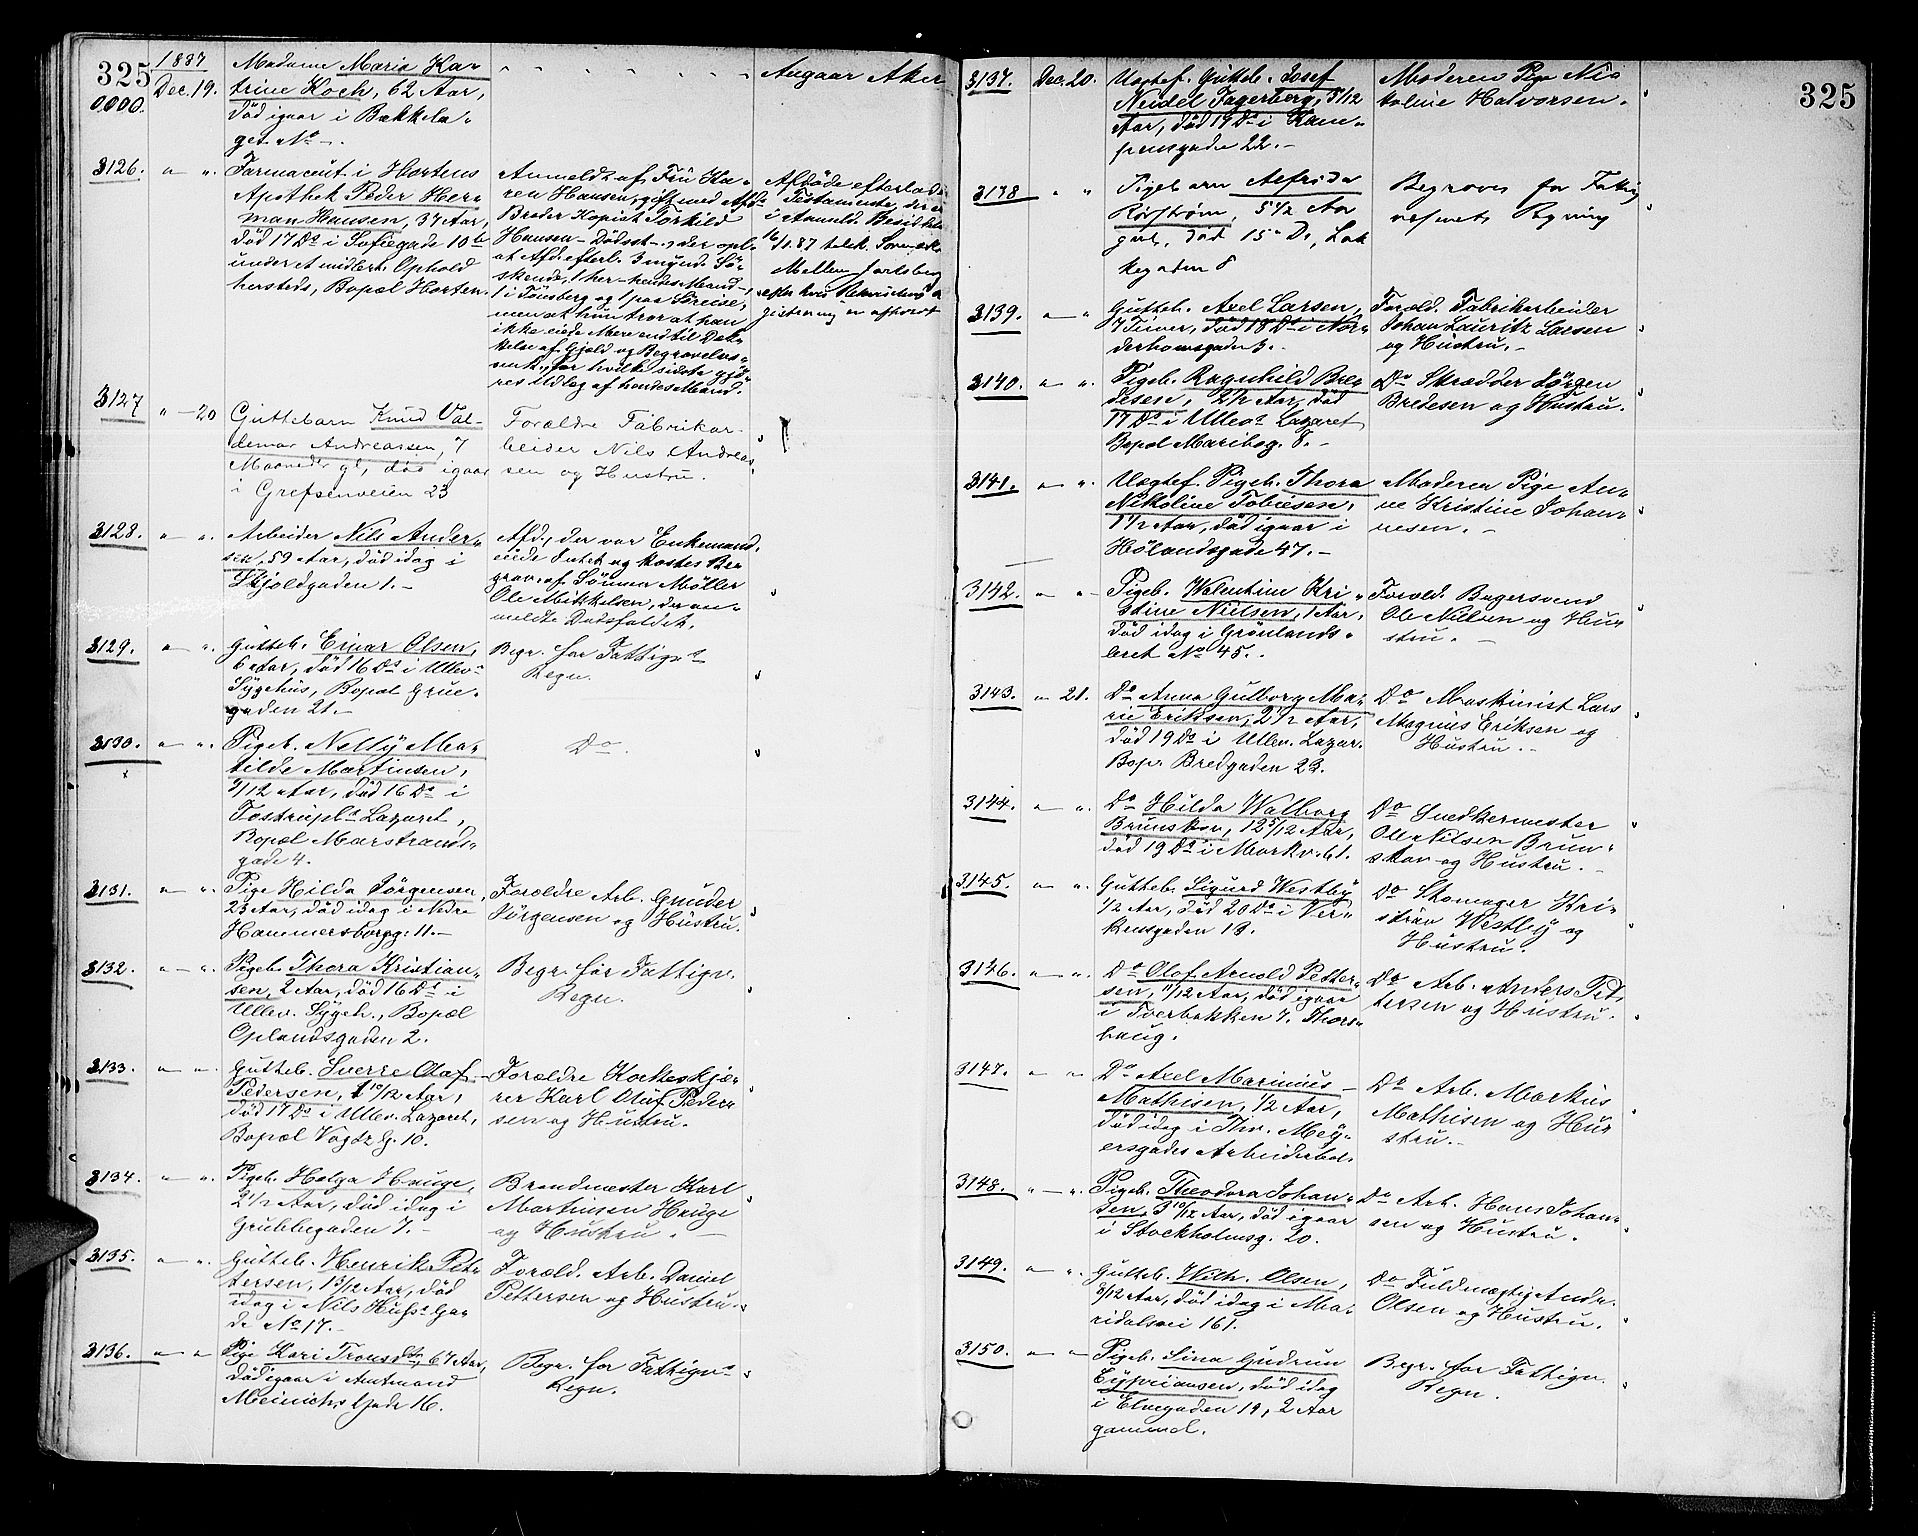 325
1887
0000.
Dec. 19.
Madame Maria Ka-
trine Koch, 62 Aar,
död igaar i Bækkela-
get No -.
Angaar Aker
3126.
Farmaceut i Hortens
Apothek Peder Her-
man Hansen, 37 Aar,
död 17 Do i Sofiegade 10 b
under et midlert. Ophold
hersteds, Bopæl Horten.
Anmeldt af Fru Ka-
ren Hansen, gift med Afd.
Broder Kopist Torkild
Hansen - Dödsst. -, der opl.
at Afd. efterl. 3 mynd. Sö-
skende, 1 her - hendes Mand -,
1 i Tönsberg og 1 paa
men at hun tror at han
ikke eiede Mere end til Dæk-
kelse af Gjæld og Begravelses-
omk., for hvilke sidste gjö-
res Udlæg af hendes Mand.
Afdöde efterlader
Testamente, der er
i Anmeld. Besiddelse
16/1 87 telek.
Mellem Jarlsberg
efter hvis
gistering er afholdt
3127
" - 20
Guttebarn Knud Val-
demar Andreassen, 7
Maaneder gl, död igaar
i Grefsenveien 23
Forældre Fabrikar-
beider Nils Andreas-
sen og Hustru.
3128.
Arbeider Nils Ander-
sen, 59 Aar, död idag i
Skjoldgaden 1. -
Afd., der var Enkemand,
eiede Intet og kostes Be-
grav. af Sönnen Möller
Ole Mikkelsen, der an-
meldte Dödsfaldet.
3129.
Gutteb. Einar Olsen,
6 Aar, död 16 Do i Ullev.
Sygehus, Bopæl Grue-
gaden 21. -
Begr. for Fattigv.
Regn.
3130.
Pigeb. Nelly Ma-
tilde Martinsen,
9/12 Aar, död 16 Do i
Tostrups Lazaret,
Bopæl Marstrands-
gade 4.
Do.
3131.
Pige Hilda Jörgensen,
23 Aar, död idag i Nedre
Hammersborgg. 11. -
Forældre Arb. Gunder
Jörgensen og Hustru.
3132.
Pigeb. Thora Kristian-
sen, 2 Aar, död 16 Do i
Ullev. Sygeh., Bopæl
Oplandsgaden 2.
Begr. for Fattigv.
Regn.
3133.
Gutteb. Sverre Olaf
Pedersen, 1 10/12 Aar,
död 17 Do i Ullev. Lazaret,
Bopæl Vogts G. 10.
Forældre Korkeskjæ-
rer Karl Oluf Peder-
sen og Hustru.
3134.
Pigeb. Helga Hauge,
2 1/2 Aar, död idag i
Grubbegaden 7. -
Brandmester Karl
Martinsen Hauge
og Hustru. -
3135.
Gutteb. Henrik Pet-
tersen, 1 3/12 Aar, död
idag i Nils Hus's Ga-
de No 17. -
Foræld. Arb. Daniel
Pettersen og Hustru.
3136.
Pige Kari Tronsdtr, 67 Aar,
död igaar i Amtmand
Meinichs Gade 16.
Begr. for Fattigv.
Regn.
325
3137.
Dec. 20.
Uægtef. Gutteb. Josef
Neidel Fagerberg, 5/12
Aar, död 19 Do i Kam-
pensgaden 22. -
Moderen Pige Ni-
koline Halvorsen.
3138
Pigebarn Alfrida
5 1/2 Aar
gml, död 15 Do, Lak-
kegaden 8
Begraves for Fattig-
væsenets Regning
3139.
Gutteb. Axel Larsen,
7 Timer, död 18 Do i Nor-
derhovsgade 3. -
Foræld. Fabrikarbeider
Johan Lauritz Larsen
og Hustru. -
3140.
Pigeb. Ragnhild Bre-
desen, 2 1/2 Aar, död
17 Do i Ullevs Lazaret
Bopæl Maribog. 8. -
Do Skrædder Jörgen
Bredesen og Hustru.
3141.
Uægtef. Pigeb. Thora
Nikoline Tobiesen,
1 1/2 Aar, död igaar i
Hölandsgade 47. -
Moderen Pige An-
ne Kristine Johan-
nesen. -
3142.
Pigeb. Walentine Kri-
stine Nielsen, 1 Aar,
död idag i Grönlands-
leret No 45. -
Foræld. Bagersvend
Ole Nilsen og Hu-
stru. -
3143.
" 21.
Do Anna Gulborg Ma-
rie Eriksen, 2 1/2 Aar,
död 19 Do i Ullev. Lazar.
Bop. Bredgaden 23.
Do Maskinist Lars
Magnus Eriksen og
Hustru. -
3144.
Do Hilda Walborg
Brunskov, 12 5/12 Aar,
död 19 Do i Markv. 61.
Do Snedkermester
Ole Nilsen Brun-
skov og Hustru. -
3145.
Gutteb. Sigurd Westby
1/2 Aar, död 20 Do i Ver-
kensgaden 13.
Do Skomager Kri-
stian Westby og
Hustru.
3146.
Do Olaf Arnold Petter-
sen, 11/12 Aar, död igaar
i Tverbakken 7. Thors-
haug.
Do Arb. Anders Pet-
tersen og Hustru.
3147.
Do Axel Marinius
Mathisen, 1/2 Aar,
död idag i Thv. Mey-
ersgades Arbeiderbol.
Do Arb. Markus
Mathisen og Hu-
stru. -
3148.
Pigeb. Theodora Johan-
sen, 3 10/12 Aar, död igaar
i Stockholmsg. 20.
Do Arb. Hans Johan-
sen og Hustru.
3149.
Gutteb. Wilh. Olsen,
8/12 Aar, död idag i Ma-
ridalsvei 161.
Do Fuldmægtig Andr.
Olsen og Hustru.
3150.
Pigeb. Lina Gudrun
Cypriansen, död idag
i Elvegaden 19, 2 Aar
gammel.
Begr. for Fattigv.
Regn.